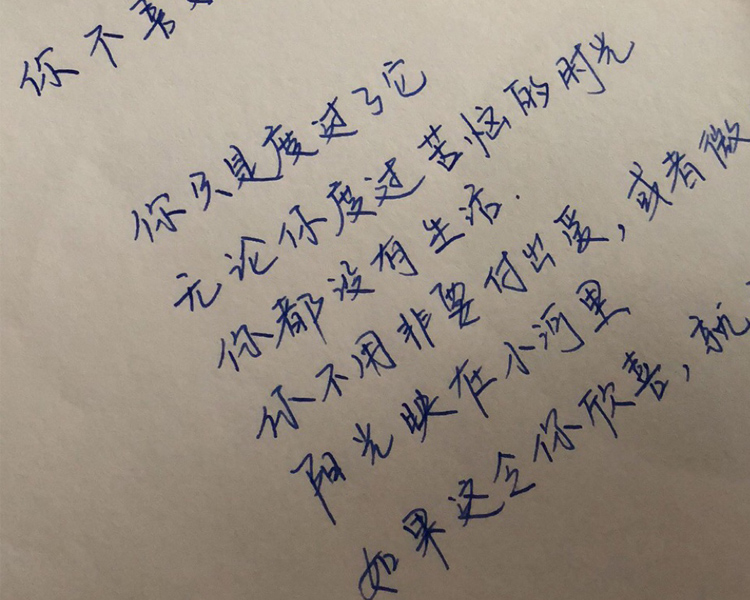 你不喜
你只是度过了它
无论你度过苦恼的时光
你都没有生活.
你不用非要付出爱，或者微
阳光映在小河里
如果这令你欣喜，就